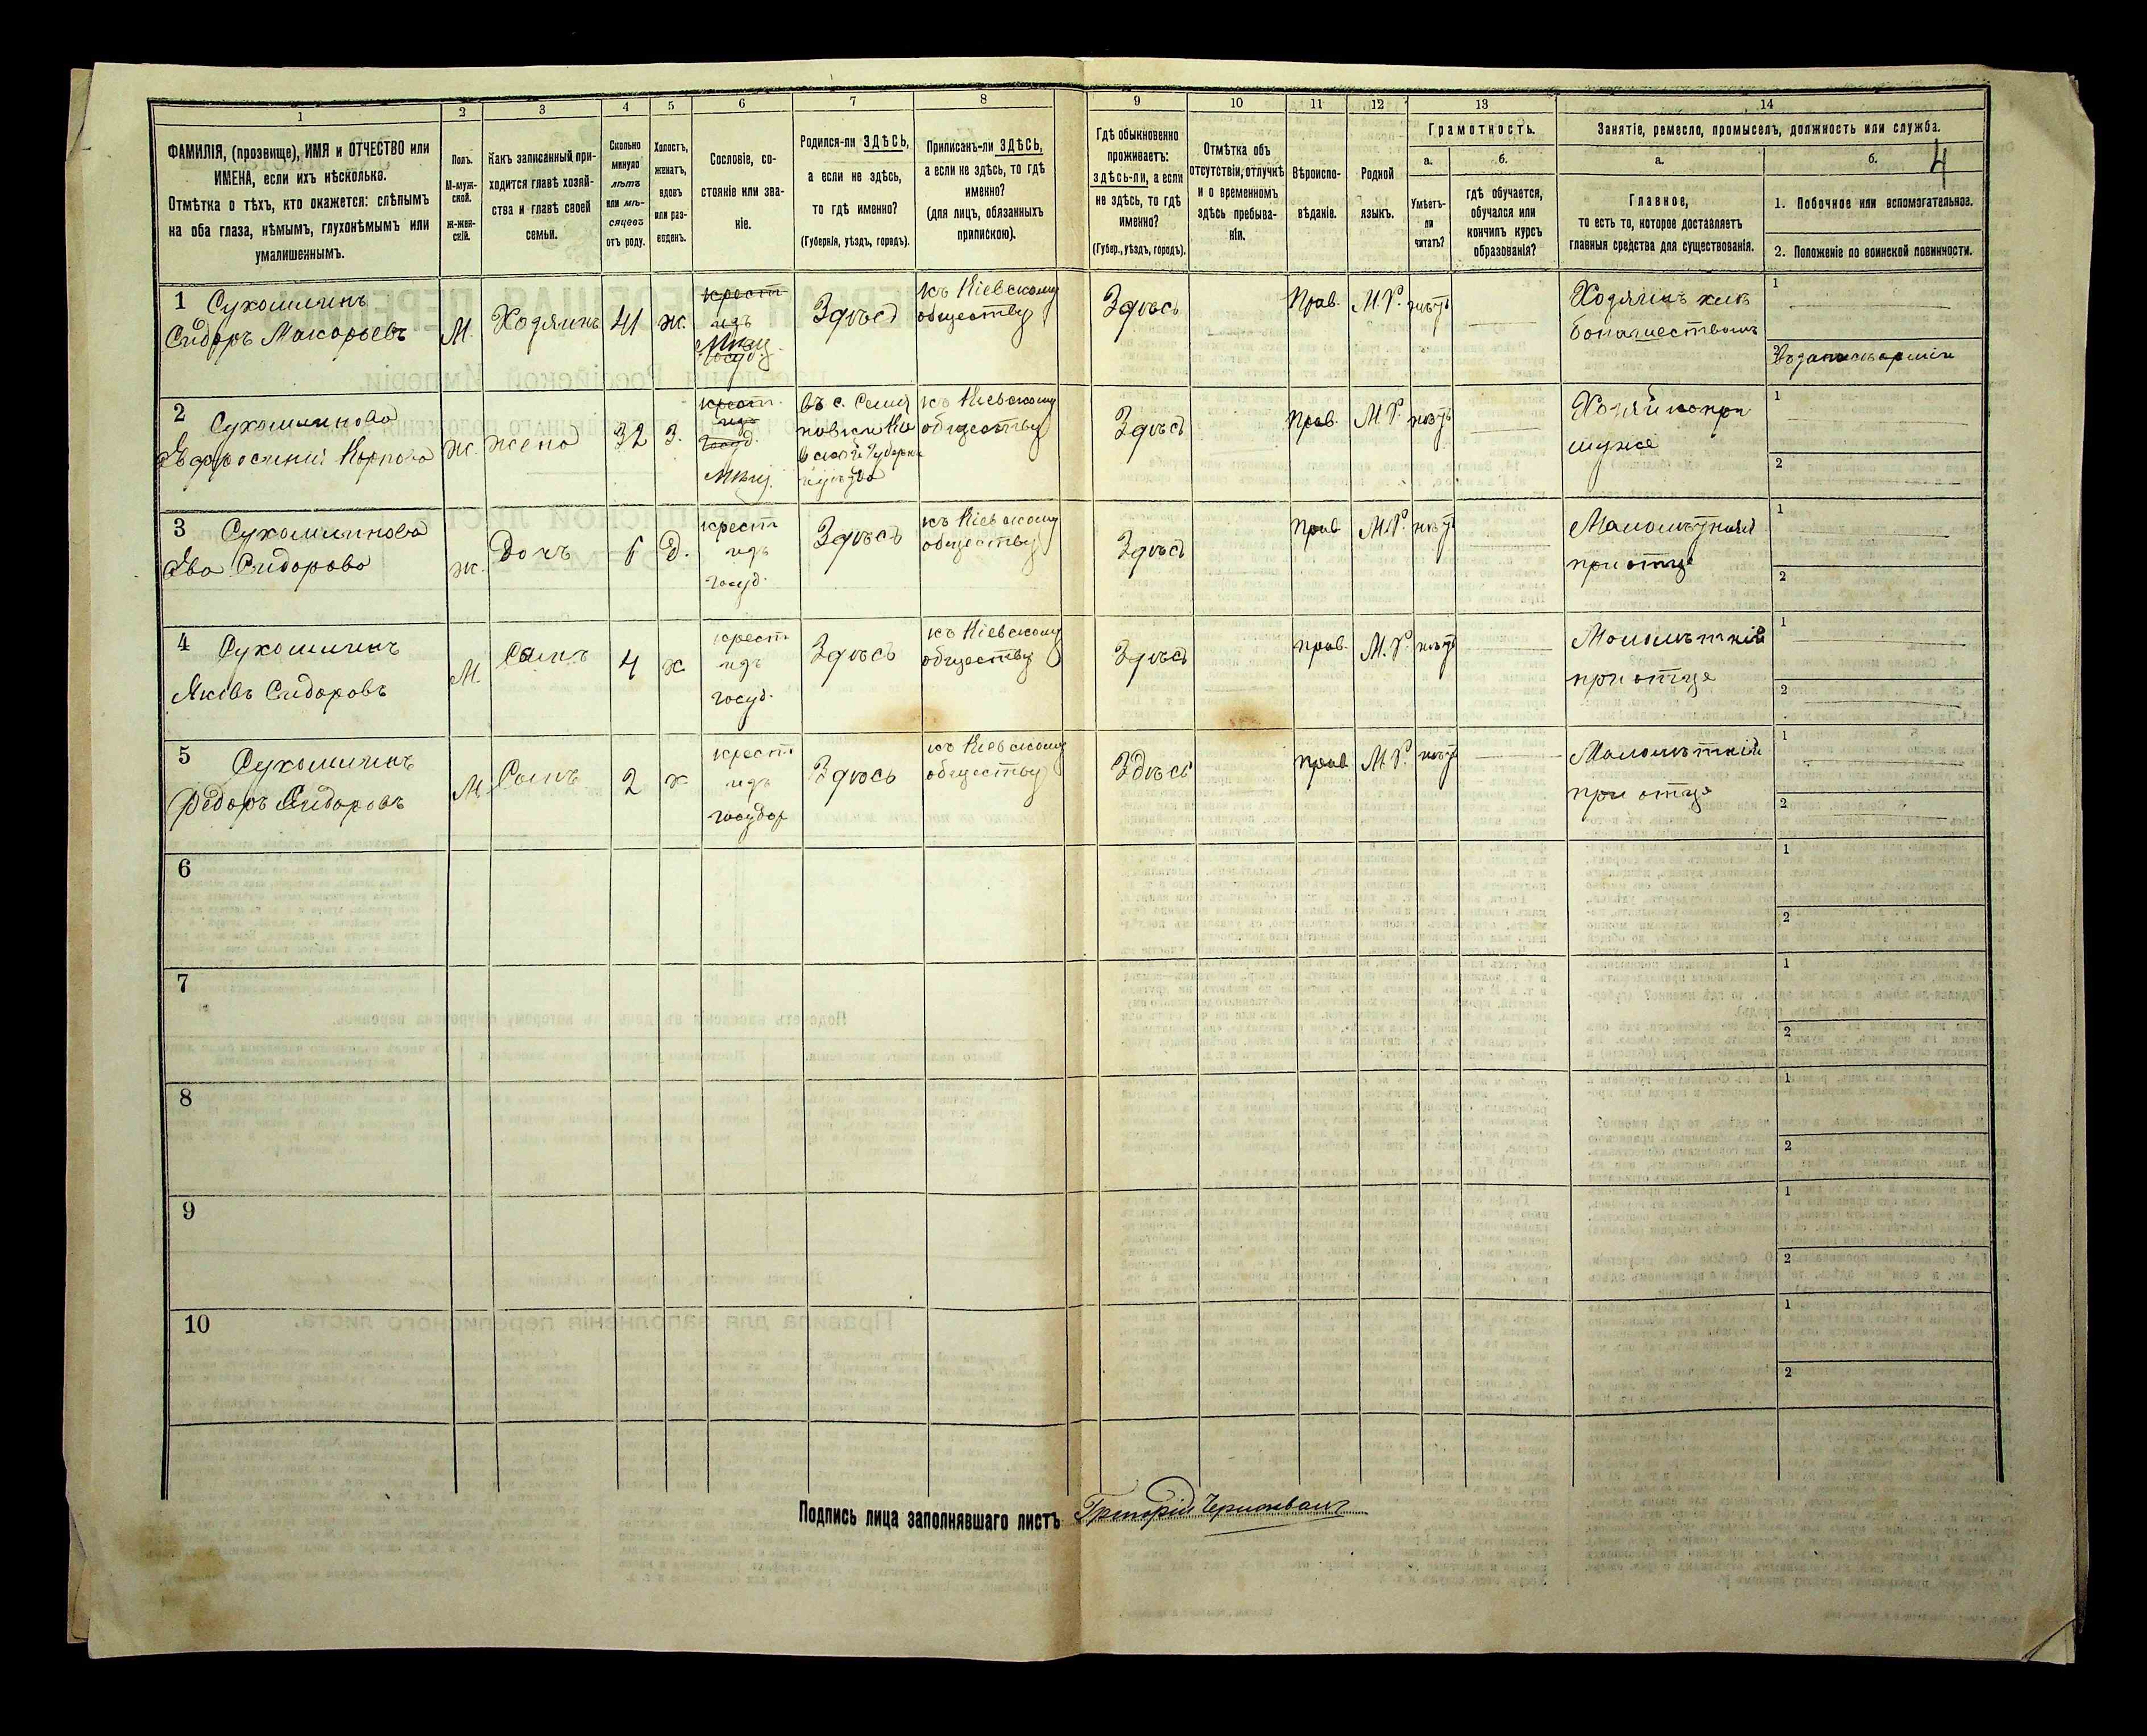 1
2
3
4
5
6
7
8
9
10
11
12
13
14
ФАМИЛІЯ, (прозвище), ИМЯ и ОТЧЕСТВО или
ИМЕНА, если ихъ нѣсколько.
Отмѣтка о тѣхъ, кто окажется: слѣпымъ
на оба глаза, нѣмымъ, глухонѣмымъ или
умалишеннымъ.
Полъ.
М-муж-
ской.
Ж-жен-
скій.
Какъ записанный при-
ходится главѣ хозяй-
ства и главѣ своей
семьи.
Сколько
минуло
лѣтъ
или мѣ-
сяцевъ
отъ роду.
Холостъ,
женатъ,
вдовъ
или раз-
веденъ.
Сословіе, со-
стояніе или зва-
ніе.
Родился-ли ЗДѢСЬ,
а если не здѣсь,
то гдѣ именно?
(Губернія, уѣздъ, городъ).
Приписанъ-ли ЗДѢСЬ,
а если не здѣсь, то гдѣ
именно?
(для лицъ, обязанныхъ
припискою).
Гдѣ обыкновенно
проживаетъ:
ЗДѢСЬ-ли, а если
не здѣсь, то гдѣ
именно?
(Губер., уѣздъ, городъ).
Отмѣтка объ
отсутствіи, отлучкѣ
и о временномъ
здѣсь пребыва-
ніи.
Вѣроиспо-
вѣданіе.
Родной
языкъ.
Грамотность.
а.
Умѣетъ-
ли
читать?
б.
гдѣ обучается,
обучался или
кончилъ курсъ
образованія?
Занятіе, ремесло, промыселъ, должность или служба.
а.
Главное,
то есть то, которое доставляетъ
главныя средства для существованія.
б.
4
1. Побочное или вспомогательное.
2. Положеніе по воинской повинности.
1 Сухошиинъ
Сидоръ Макарьевъ
М.
Хозяинъ
41
ж.
крест
изъ
Мѣщ.
госуд.
Здѣсь
къ Кіевскому
обществу
Здѣсь
Прав.
М.Р.
нѣтъ
Хозяинъ хлѣ
бопашествомъ
1
2
2 Сухошинова
Ж.
жена
32
З.
крест.
изъ
госуд.
Мѣщ.
въ с.
къ Кіевскому
обществу
Здѣсь
Прав.
М.Р.
нѣтъ
Хозяйка при
мужѣ
1
2
3 Сухошинова
Ева Сидорова
ж.
Дочь
Д.
крест
изъ
госуд.
Здѣсь
къ Кіевскому
обществу
Здѣсь
Прав
М.Р.
нѣтъ
Малолѣтняя
при отце
1
2
4 Сухошиинъ
Яковъ Сидоровъ
М.
Сынъ
4
х
крест
изъ
госуд.
Здѣсь
къ Кіевскому
обществу
Здѣсь
прав.
М.Р.
нѣтъ
Малолѣтній
при отце
1
2
5 Сухошиинъ
Федоръ Сидоровъ
М
Сынъ
2
х
крест
изъ
государ
Здѣсь
къ Кіевскому
обществу
Здѣсь
прав
М.Р.
нѣтъ
Малолѣтній
при отце
1
2
6
1
2
7
1
2
8
1
2
9
1
2
10
1
2
Подпись лица заполнявшаго листъ Григорій